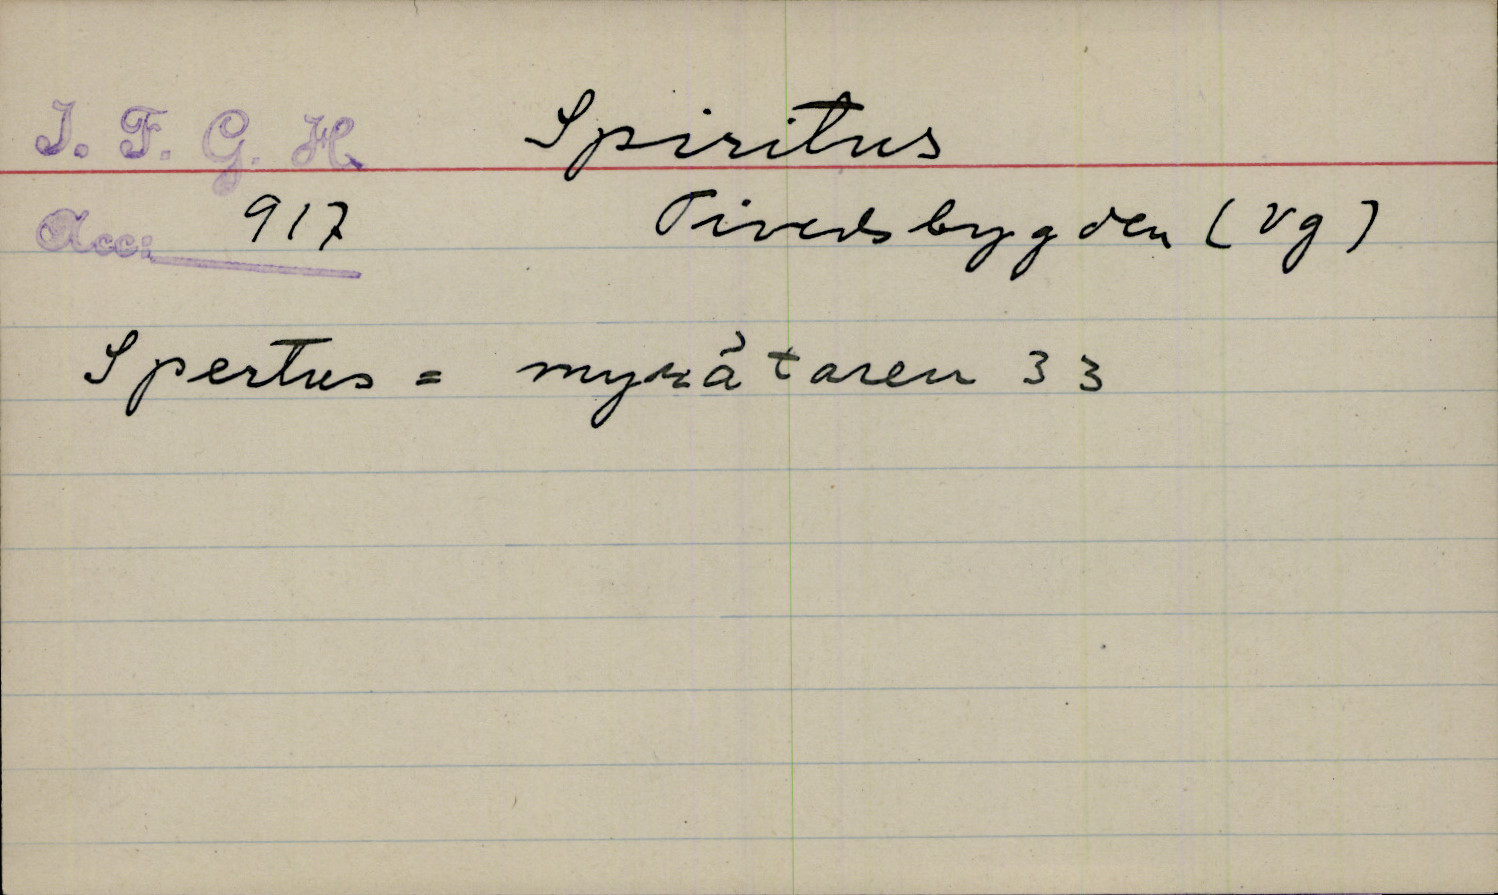 I. F. G. H. Spiritus
Acc: 917 Tivedsbygden (Vg)
Spertus = myråtaren 33